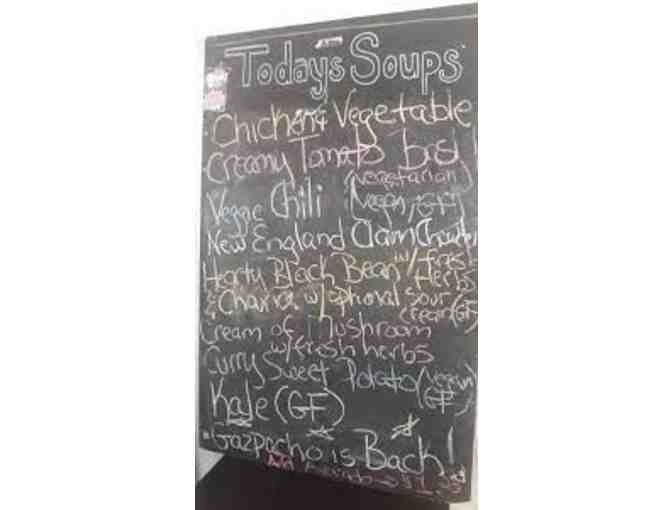 Todays Soups
Chicken & Vegetable
Creamy Tomato basil
(vegetarian)
Veggie Chili (Vegan, GF)
New England Clam Chowder
Hearty Black Bean w/ fresh
Herbs
& w/ optional sour
cream (GF)
Cream of Mushroom
w/fresh herbs
Curry Sweet Potato (Vegan)
(GF)
Kale (GF)
Gazpacho is Back!